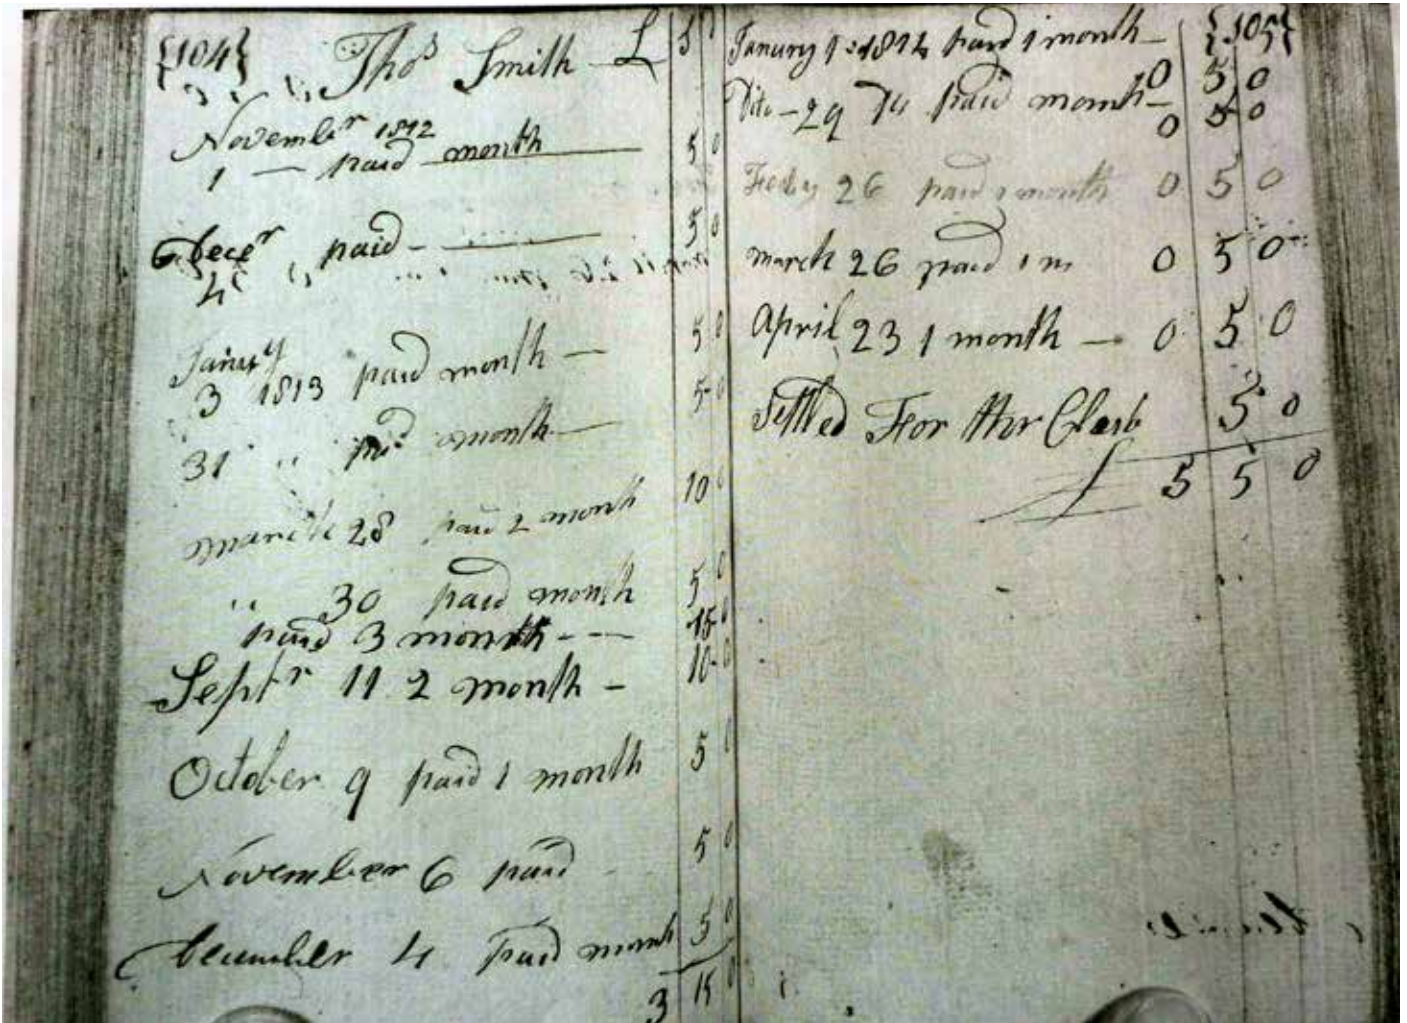 {104}
Thos Smith £ S
Novembr 1812
1 — paid month 5 0
Decer paid — 5 0
4
Janry
3 1813 paid month — 5 0
31 " paid month — 5 0
march 28 paid 2 month 10 0
" 30 paid month 5 0
paid 3 month - — 15 0
Septr 11 2 month - 10 0
October 9 paid 1 month 5 0
November 6 paid 5 0
December 4 paid month 5 0
3 15 0
{105}
January 1 paid 1 month — 0 5 0
Dito — 29 paid month — 0 5 0
Feby 26 paid 1 month 0 5 0
march 26 paid 1 m 0 5 0
April 23 1 month — 0 5 0
Settled For 5 0
£ 5 5 0